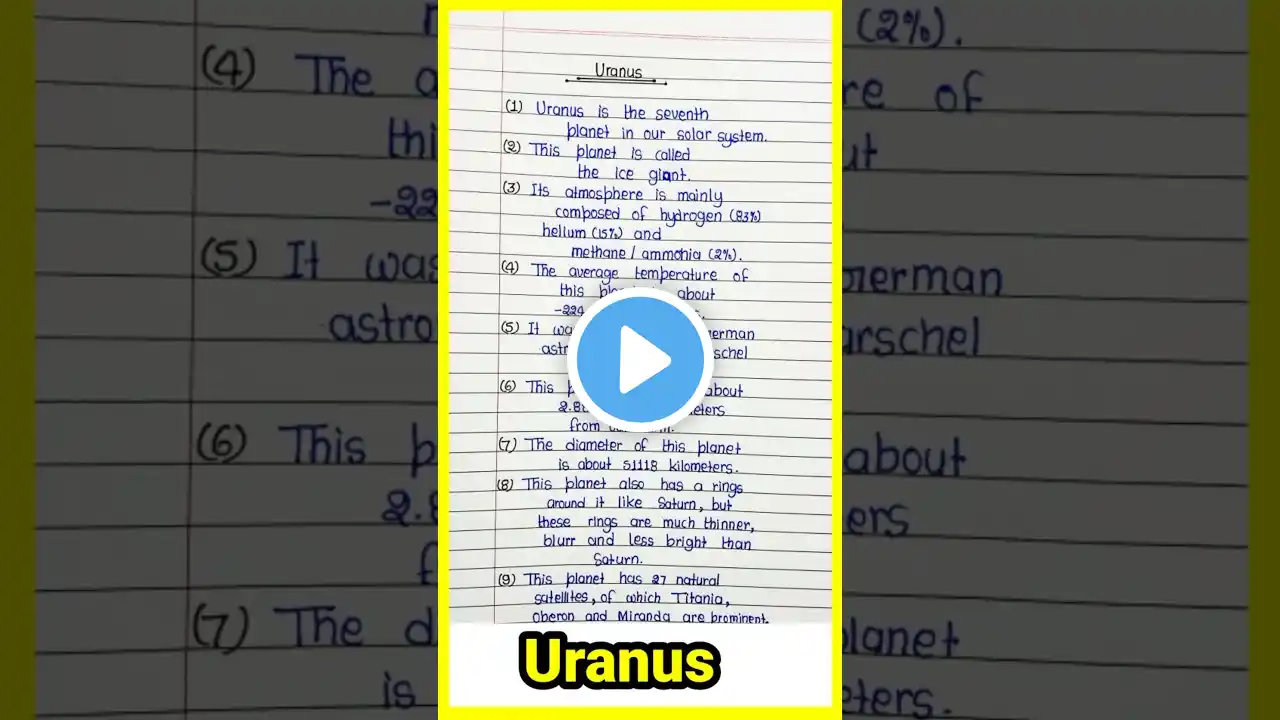 Uranus
(1) Uranus is the seventh
planet in our solar system.
(2) This planet is called
the ice giant.
(3) Its atmosphere is mainly
composed of hydrogen (83%)
helium (15%) and
methane / ammonia (2%).
(4) The average temperature of
this about
-224
(5) It was German
schel
(6) This about
from
(7) The diameter of this planet
is about 51118 kilometers.
(8) This planet also has a rings
around it like Saturn, but
these rings are much thinner,
blurr and less bright than
Saturn.
(9) This planet has 27 natural
satellites, of which Titania,
Oberon and Miranda are prominent.
Uranus
(2%).
(4) The
of
(5) It was
German
(6) This
about
(7) The
planet
is